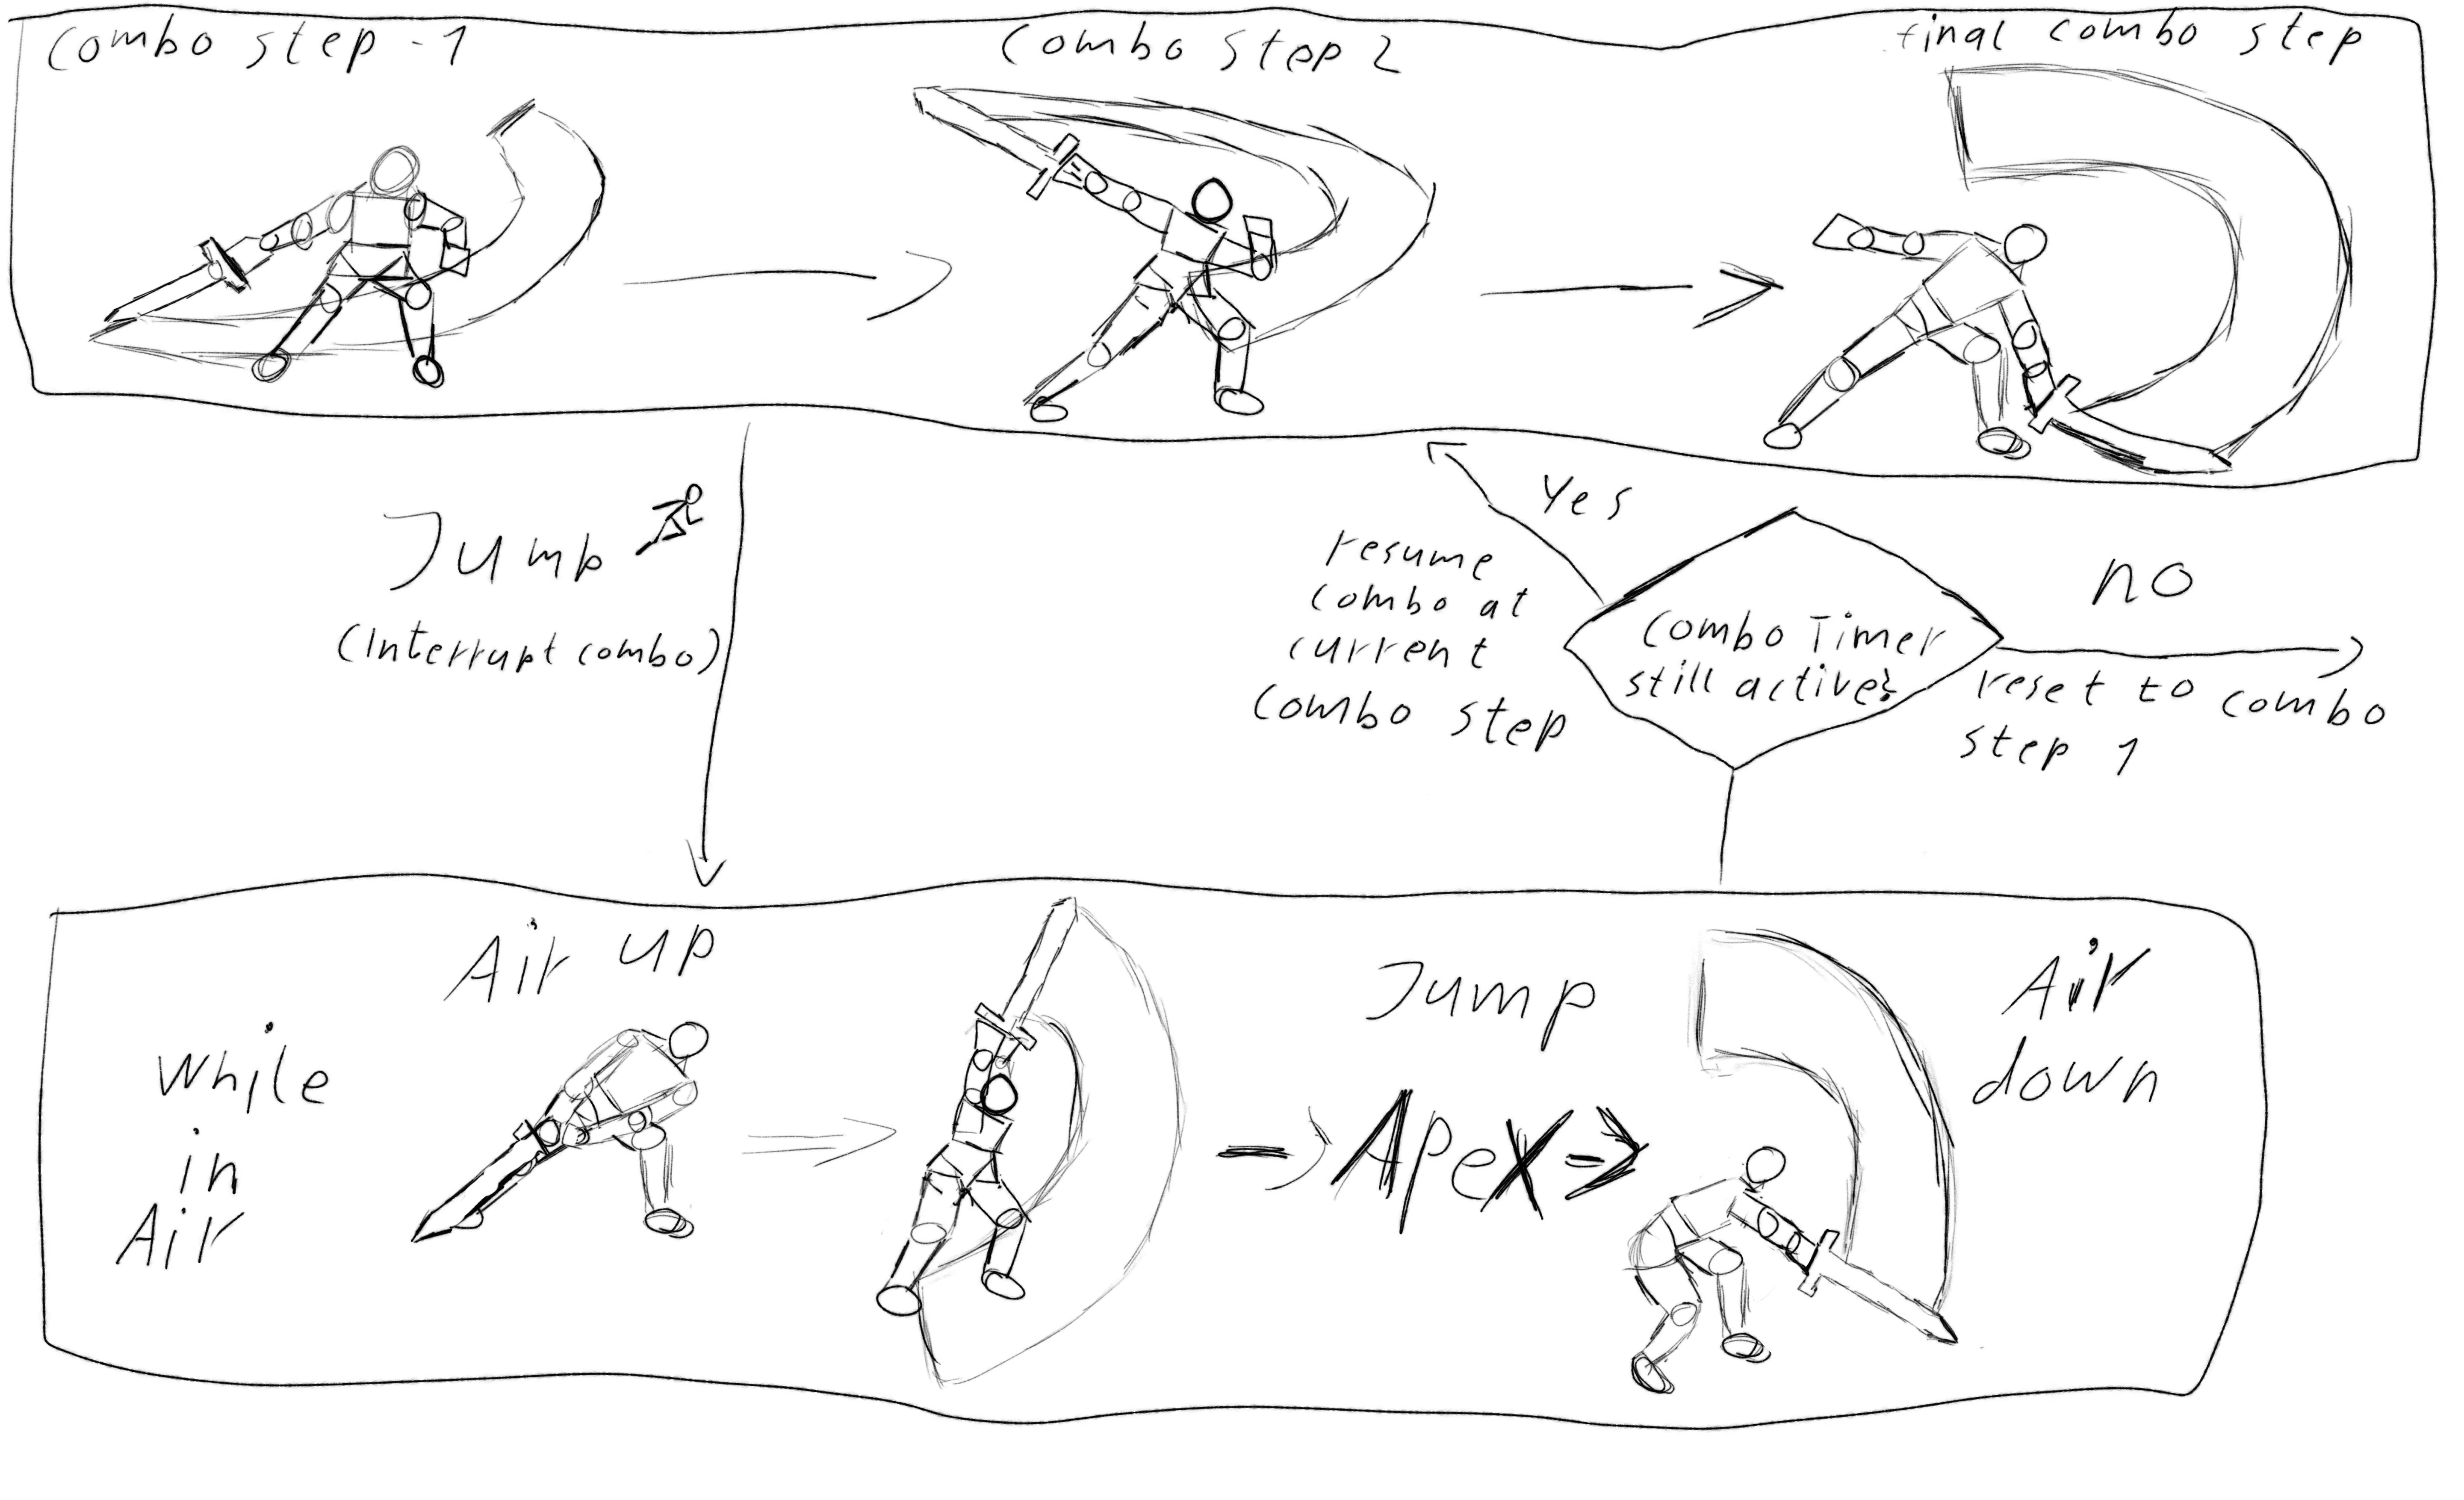 combo step - 1
combo step 2
final combo step
Jump
(Interrupt combo)
Yes
resume
combo at
current
combo step
combo Timer
still active?
no
reset to combo
step 1
While
in
Air
Air up
Jump
Apex
Air
down